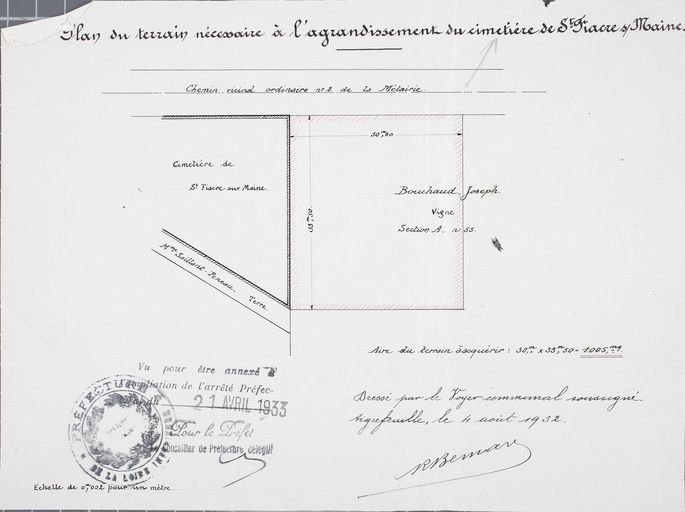 Plan du terrain nécessaire à l'agrandissement du cimetière de St Fiacre s/ Maine.
Chemin vicinal ordinaire n° 2 de la Métairie.
30m00
Cimetière de
St Fiacre sur Maine.
33m50
Bouchaud, Joseph.
Vigne
Section A. n° 55.
Mme
Terre.
Aire du terrain à acquérir : 30m x 33m,50 = 1005m².
Vu pour être annexé à
ampliation de l'arrêté Préfec-
du 21 AVRIL 1933
Pour le Préfet
Conseiller de Préfecture délégué
PRÉFECTURE
DE LA LOIRE INFRE
Dressé par le Voyer communal soussigné
Aigrefeuille, le 4 août 1932.
Echelle de 0m002 pour un mètre.